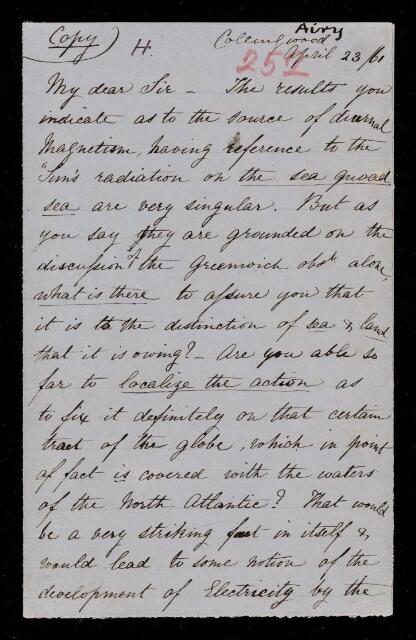 (Copy) H. Airy
Collingwood
252 April 23 /61
My dear Sir - The results you
indicate as to the source of diurnal
Magnetism, having reference to the
Sun's radiation on the sea quoad
sea are very singular. But as
you say they are grounded on the
discussion of the Greenwich obsns alone,
what is there to assure you that
it is to the distinction of sea & land
that it is owing? - Are you able so
far to localize the action as
to fix it definitely on that certain
tract of the globe, which in point
of fact is covered with the waters
of the North Atlantic? That would
be a very striking fact in itself &
would lead to some notion of the
development of Electricity by the